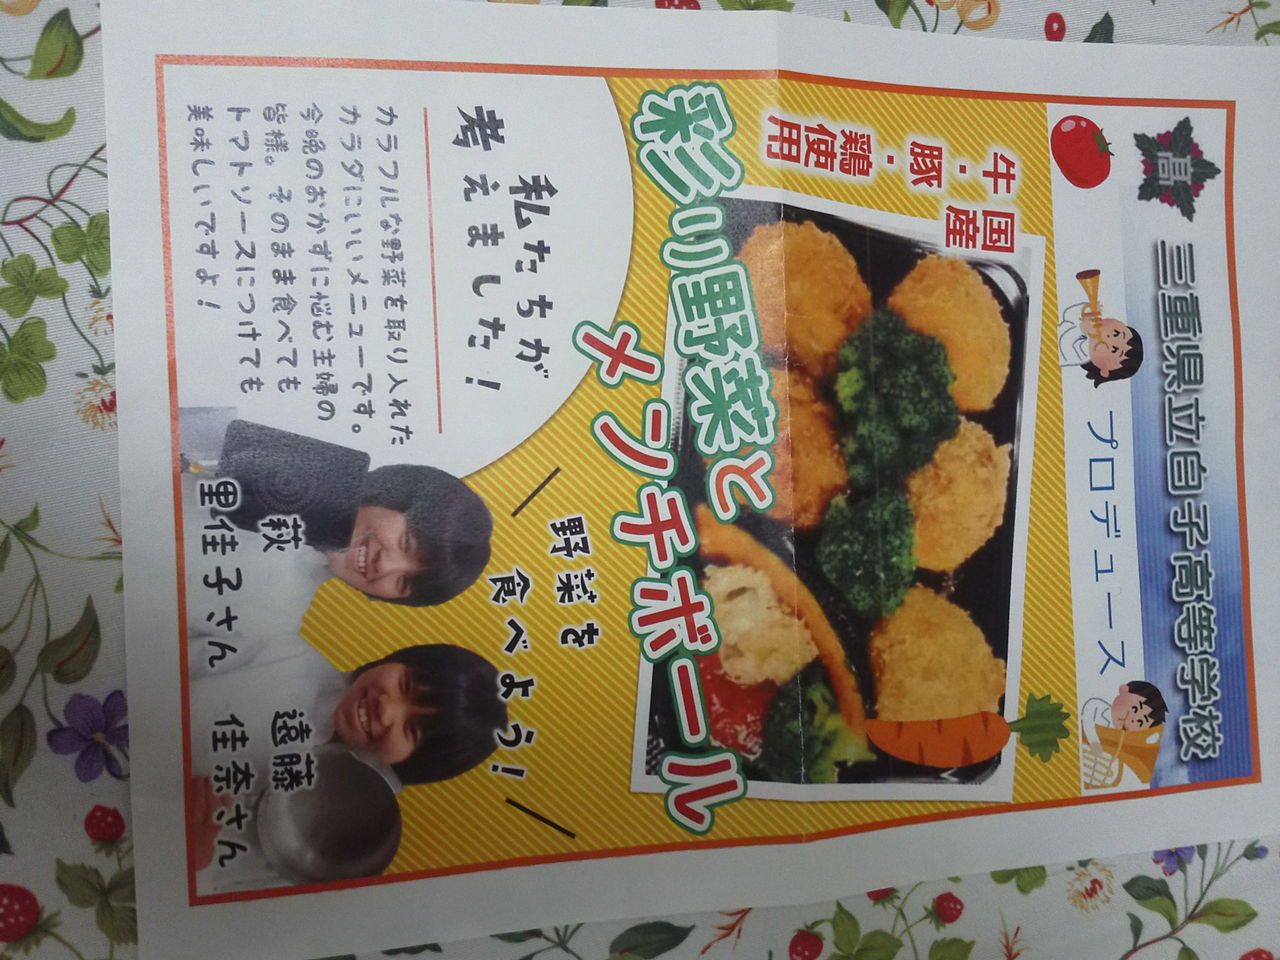 高
三重県立白子高等学校
プロデュース
国産
牛・豚・
鶏使用
彩り野菜と
メンチボール
私たちが
考えました！
カラフルな野菜を取り入れた
カラダにいいメニューです。
今晩のおかずに悩む主婦の
皆様。そのまま食べても
トマトソースにつけても
美味しいですよ！
野菜を
食べよう！
萩
里佳子さん
遠藤
佳奈さん